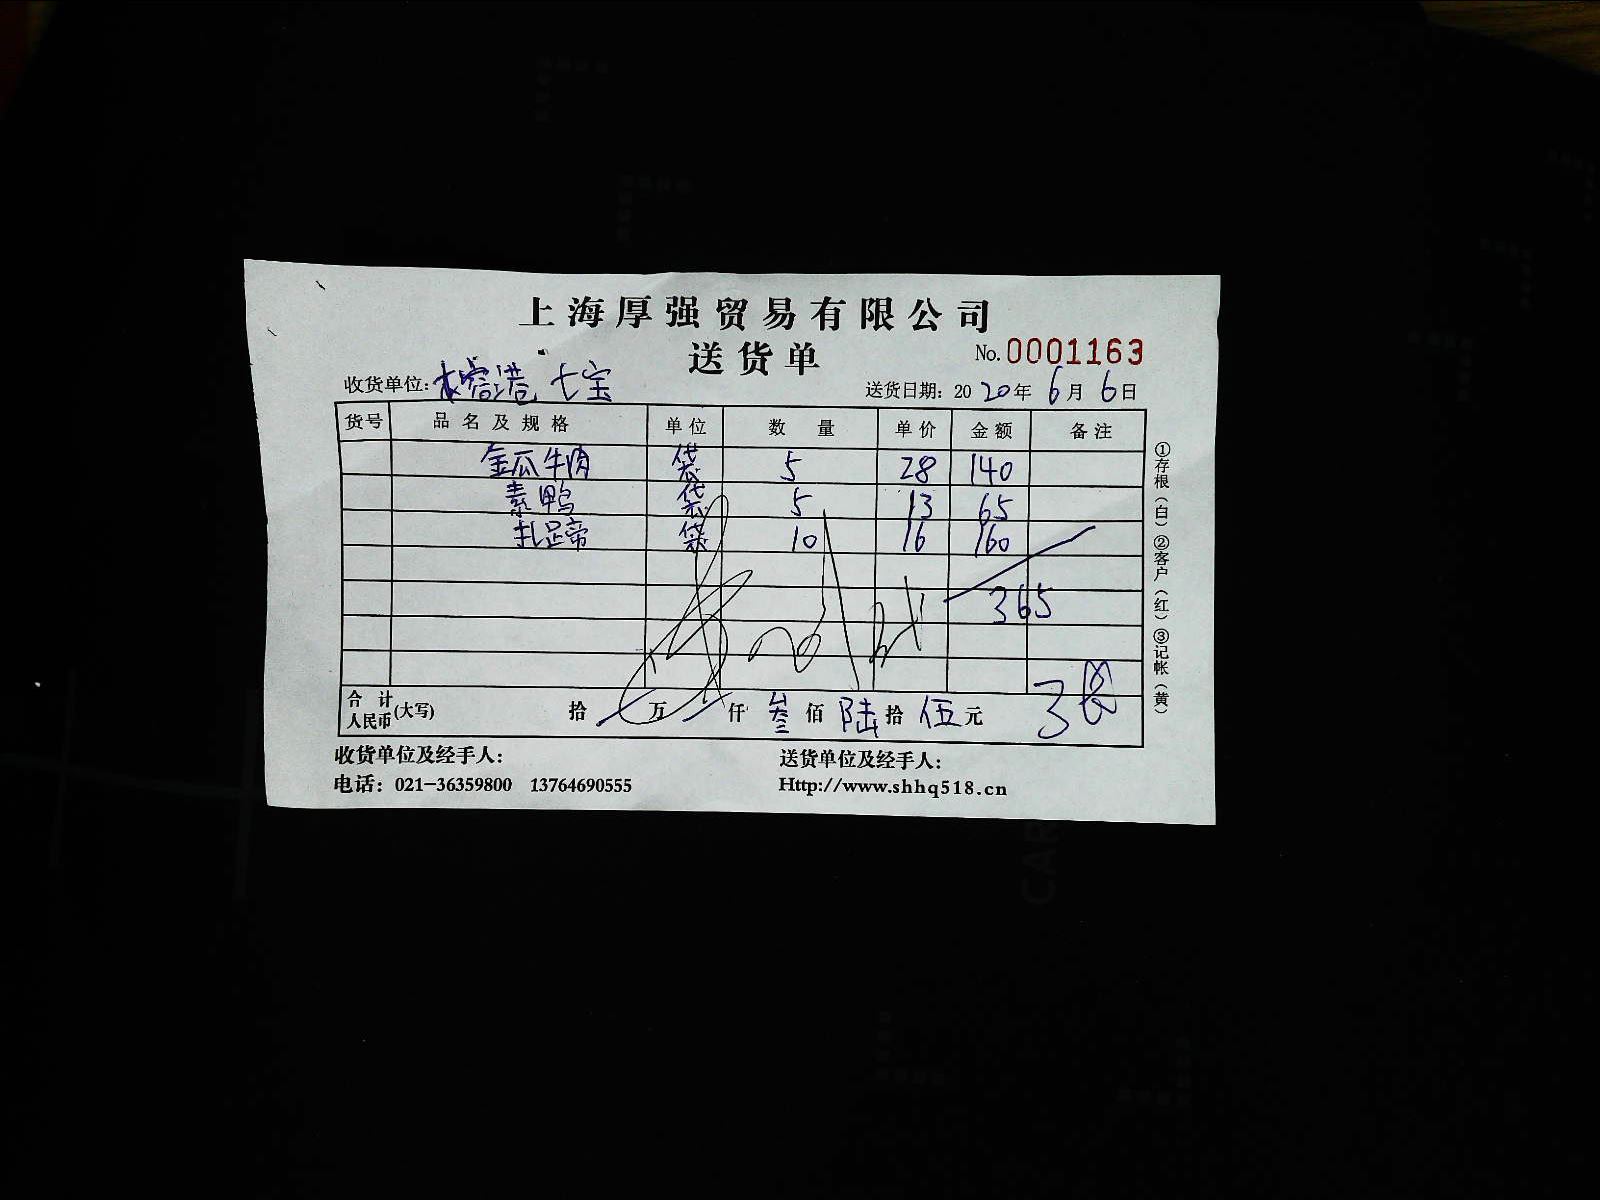 上海厚强贸易有限公司
送货单
No.0001163
收货单位: 榕港 七宝
送货日期: 2020年6月6日
货号 品名及规格 单位 数量 单价 金额 备注
金瓜牛肉 袋 5 28 140
素鸭 袋 5 13 65
扎蹄 袋 10 16 160
365
合计人民币(大写) 拾 万 仟 叁 佰 陆 拾 伍 元
收货单位及经手人:
送货单位及经手人:
电话: 021-36359800 13764690555
Http://www.shhq518.cn
①存根(白)②客户(红)③记帐(黄)